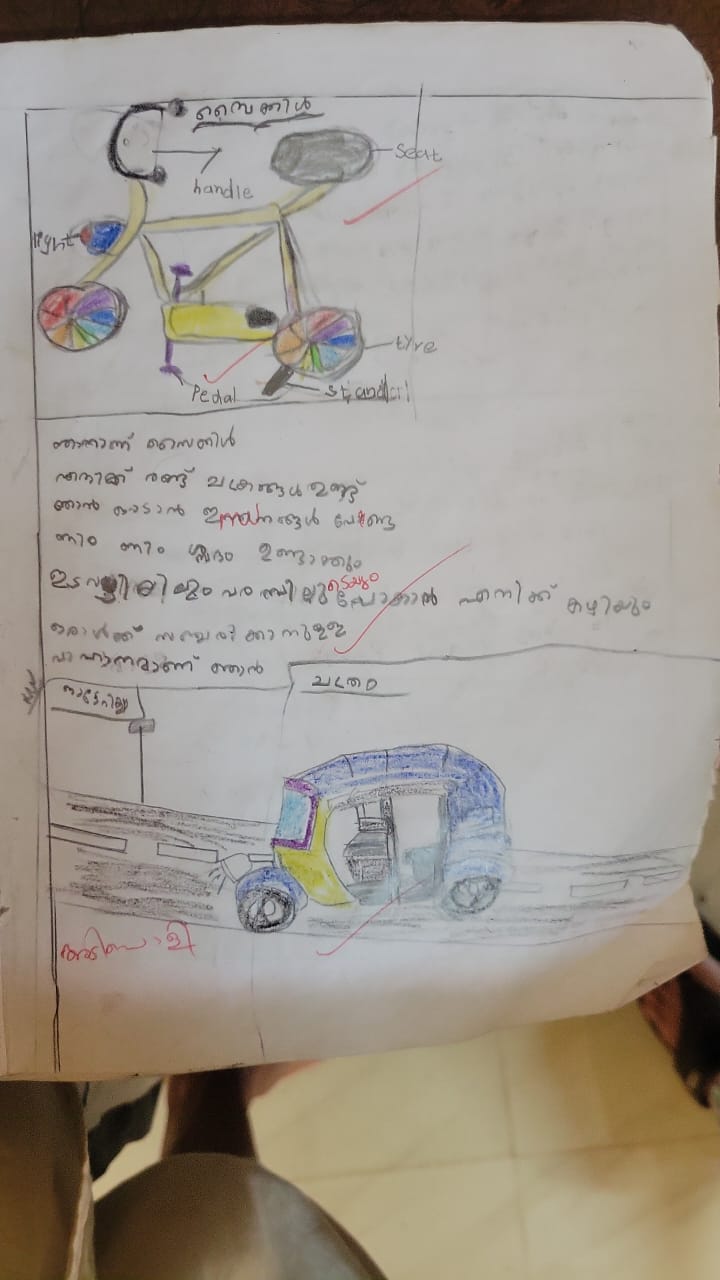 സൈക്കിൾ
seat
handle
light
tyre
Pedal
stand
ഞാനാണ് സൈക്കിൾ
എനിക്ക് രണ്ട് ചക്രങ്ങൾ ഉണ്ട്
ഞാൻ ഓടാൻ ഇന്ധനങ്ങൾ വേണ്ട
ണിം ണിം ശബ്ദം ഉണ്ടാക്കും
ഇടവഴിയിലും വരമ്പിലൂടെയും പോകാൻ എനിക്ക് കഴിയും
ഒരാൾക്ക് സഞ്ചരിക്കാനുള്ള
വാഹനമാണ് ഞാൻ
ചിത്രം
അടിപൊളി